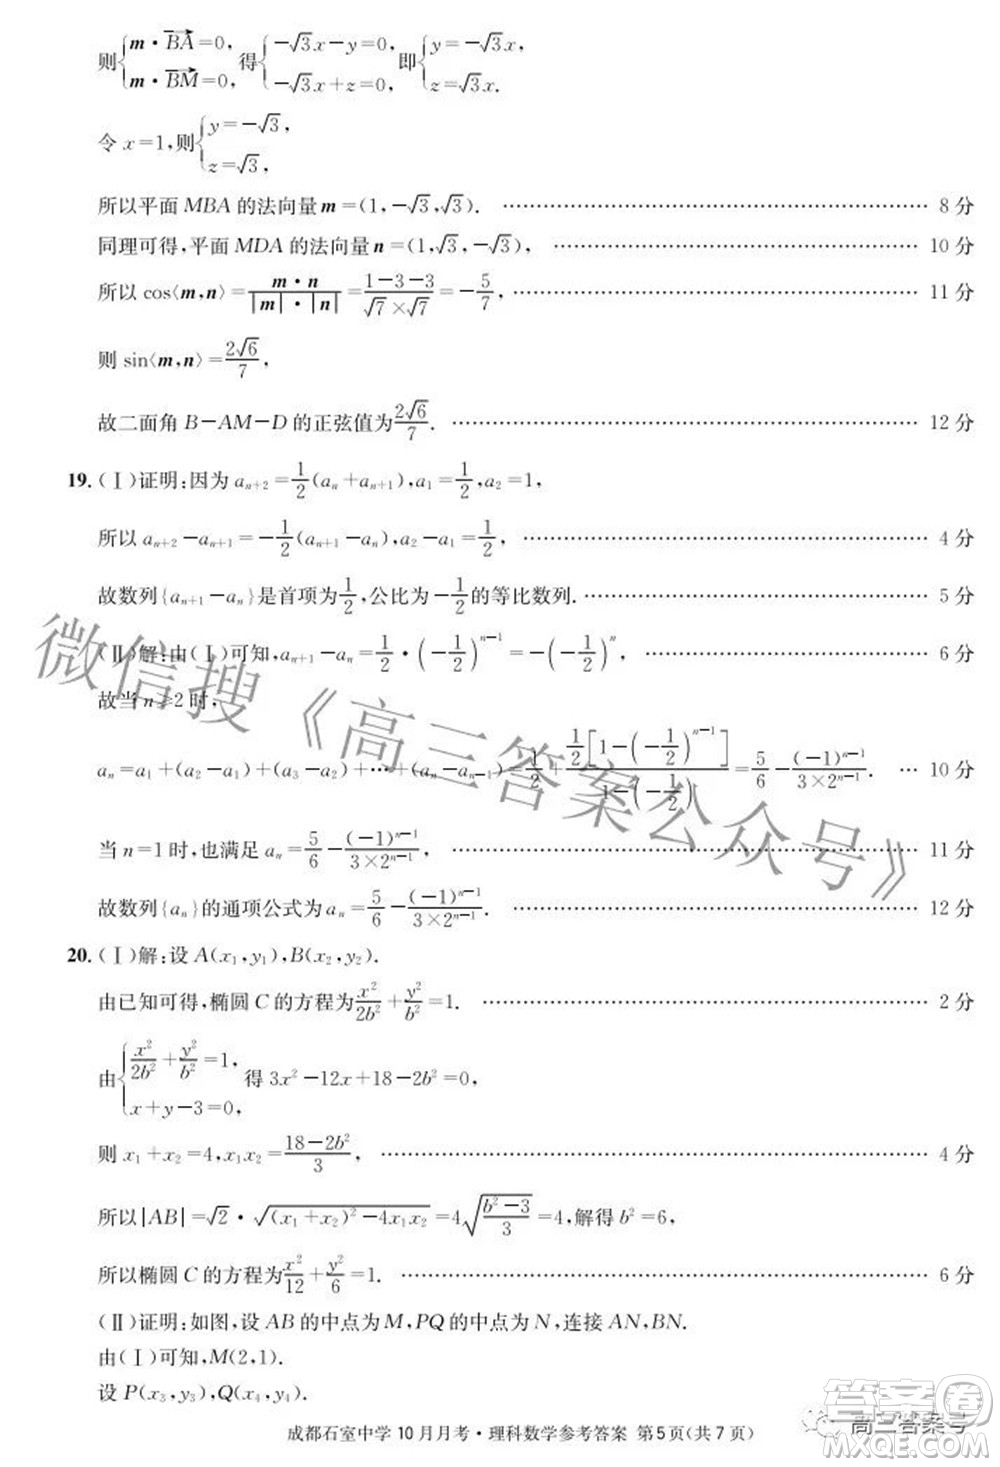 则{m·BA→=0, m·BM→=0, 得{−√3x−y=0, −√3x+z=0, 即{y=−√3x, z=√3x.
令 x=1,则{y=−√3, z=√3,
所以平面 MBA 的法向量 m=(1,−√3,√3). …… 8 分
同理可得,平面 MDA 的法向量 n=(1,√3,−√3), …… 10 分
所以 cos⟨m,n⟩=m·n/(|m|·|n|)=(1−3−3)/(√7×√7)=−5/7, …… 11 分
则 sin⟨m,n⟩=2√6/7,
故二面角 B−AM−D 的正弦值为2√6/7. …… 12 分
19.(Ⅰ)证明:因为 aₙ₊₂=1/2(aₙ+aₙ₊₁),a₁=1/2,a₂=1,
所以 aₙ₊₂−aₙ₊₁=−1/2(aₙ₊₁−aₙ),a₂−a₁=1/2, …… 4 分
故数列{aₙ₊₁−aₙ}是首项为1/2,公比为−1/2的等比数列. …… 5 分
(Ⅱ)解:由(Ⅰ)可知,aₙ₊₁−aₙ=1/2·(−1/2)ⁿ⁻¹=−(−1/2)ⁿ, …… 6 分
故当 n≥2 时,
aₙ=a₁+(a₂−a₁)+(a₃−a₂)+…+(aₙ−aₙ₋₁)=1/2+(1/2[1−(−1/2)ⁿ⁻¹])/(1−(−1/2))=5/6−(−1)ⁿ⁻¹/(3×2ⁿ⁻¹). … 10 分
当 n=1 时,也满足 aₙ=5/6−(−1)ⁿ⁻¹/(3×2ⁿ⁻¹), …… 11 分
故数列{aₙ}的通项公式为 aₙ=5/6−(−1)ⁿ⁻¹/(3×2ⁿ⁻¹). …… 12 分
20.(Ⅰ)解:设 A(x₁,y₁),B(x₂,y₂).
由已知可得,椭圆 C 的方程为x²/2b²+y²/b²=1. …… 2 分
由{x²/2b²+y²/b²=1, x+y−3=0, 得 3x²−12x+18−2b²=0,
则 x₁+x₂=4,x₁x₂=(18−2b²)/3, …… 4 分
所以|AB|=√2·√((x₁+x₂)²−4x₁x₂)=4√((b²−3)/3)=4,解得 b²=6,
所以椭圆 C 的方程为x²/12+y²/6=1. …… 6 分
(Ⅱ)证明:如图,设 AB 的中点为 M,PQ 的中点为 N,连接 AN,BN.
由(Ⅰ)可知,M(2,1).
设 P(x₃,y₃),Q(x₄,y₄).
成都石室中学 10 月月考·理科数学参考答案 第 5 页(共 7 页)
微信搜《高三答案公众号》
高三答案号
答案圈
MXQE.COM